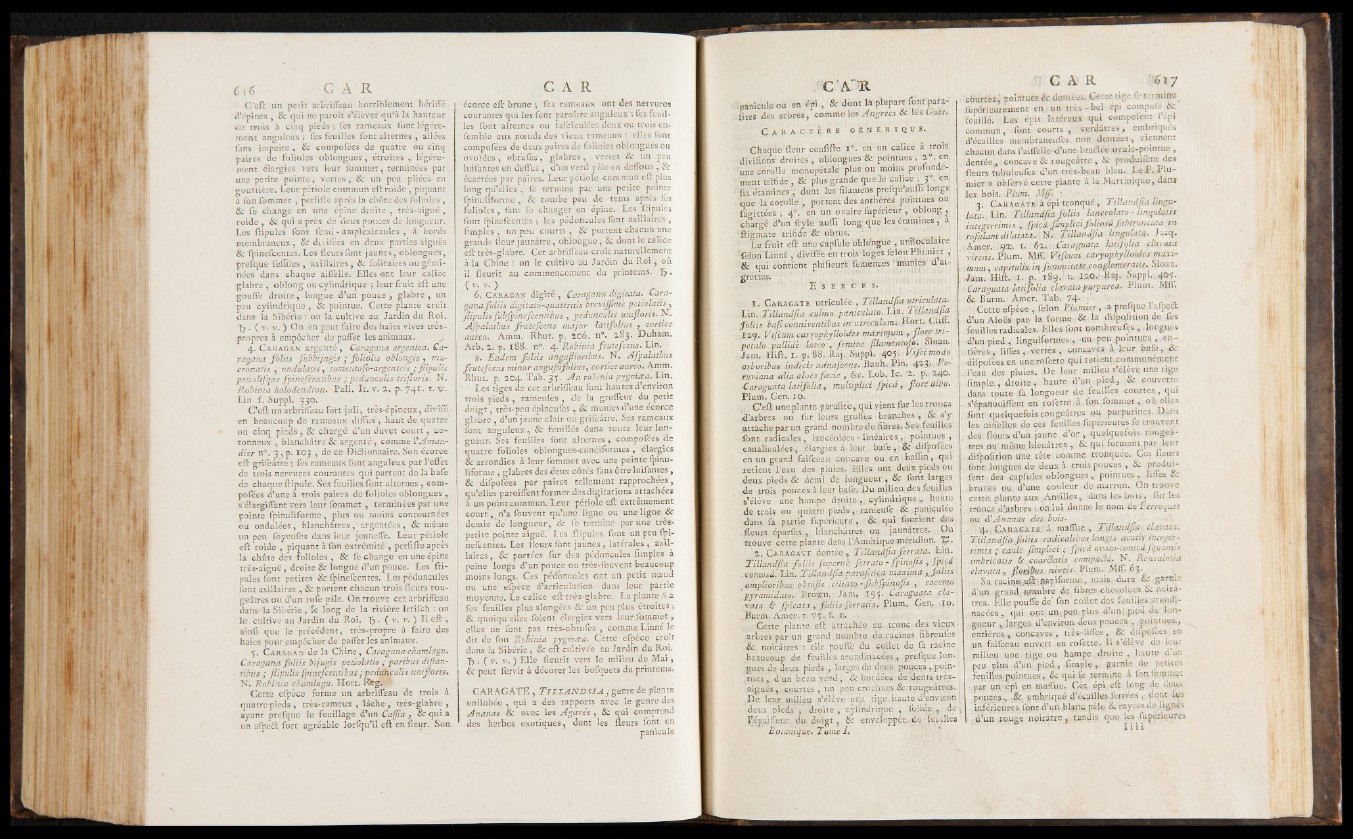 616 C A R
C'eſt un petit arbriſſeau horriblement hériſſé
d'épines , & qui ne paroît s'élever qu'à la hauteur
de trois à cinq pieds ; ſes rameaux ſont légère-
ment anguleux ; ſes feuilles ſont alternes , ailées
ſans impaire , & compoſées de quatre ou cinq
paires de folioles oblongues , étroites , légère-
ment élargies vers leur ſommet , terminées par
une petite pointe , vertes , & un peu pliées en
gouttière. Leur pétiole commun eſt roide , piquant
à ſon ſommet , perſiſte après la chûte des folioles ,
& ſe change en une épine droite , très-aiguë ,
roide , & qui a près de deux pouces de longueur.
Les ſtipules ſont ſemi - amplexicaules , à bords
membraneux , & diviſées en deux parties aiguës
& ſpineſcentes. Les fleurs ſont jaunes , oblongues ,
preſque ſeſſiles , axillaires , & ſolitaires ou gémi-
nées dans chaque aiſſelle. Elles ont leur calice
glabre , oblong ou cylindrique ; leur fruit eſt une
gouſſe droite , longue d'un pouce , glabre , un
peu cylindrique , & pointue. Cette plante croît
dans la Sibérie : on la cultive au Jardin du Roi.
♄. ( v. v. ) On en peut faire des haies vives très-
propres à empêcher de paſſer les animaux.
4. CARAGAN argenté , Caragana argentea. Ca-
ragana foliis ſubbijugis ; foliolis oblongis , mu-
cronatis , undulatis , tomentoſo-argenteis ; ſtipulis
petioliſque ſpineſcentibus ; pedunculis trifloris. N.
Robinia halodendron. Pall. It. v. 2. p. 741. t. w.
Lin f. Suppl. 330.
C'eſt un arbriſſeau fort joli, très-épineux , diviſé
en beaucoup de rameaux diffus , haut de quatre
ou cinq pieds , & chargé d'un duvet court , co-
tonneux , blanchâtre & argenté , comme l'Aman-
dier n°. 3, p. 103 , de ce Dictionnaire. Son écorce
eſt griſeâtre ; ſes rameaux ſont anguleux par l'effet
de trois nervures courantes qui partent de la baſe
de chaque ſtipule. Ses feuilles ſont alternes , com-
poſées d'une à trois paires de folioles oblongues ,
s'élargiſſant vers leur ſommet , terminées par une
pointe ſpinuliforme , plus ou moins contournées
ou ondulées , blanchâtres , argentées , & même
un peu ſoyeuſes dans leur jeuneſſe. Leur pétiole
eſt roide , piquant à ſon extrémité , perſiſte après
la chûte des folioles , & ſe change en une épine
très-aiguë , droite & longue d'un pouce. Les ſti-
pules ſont petites & ſpineſcentes. Les pédoncules
ſont axillaires , & portent chacun trois fleurs rou-
geâtres ou d'un roſe pâle. On trouve cet arbriſſeau
dans la Sibérie , le long de la rivière Irtiſch : on
le cultive au Jardin du Roi. ♄. ( v. v. ) Il eſt ,
ainſi que le précédent , très-propre à faire des
haies pour empêcher de paſſer les animaux.
5. CARAGAN de la Chine , Caragana chamlagu.
Caragana foliis bijugis petiolatis ; paribus diſtan-
ribus ; ſtipulis ſpineſcentibus ; pedunculis unifloris.
N. Robinia chamlagu. Hort. Reg.
Cette eſpèce forme un arbriſſeau de trois à
quatre pieds , très-rameux , lâche , très-glabre ,
ayant preſque le feuillage d'un Caſſia , & qui a
un aſpect fort agréable lorſqu'il eſt en fleur. Son
C A R
écorce eſt brune ; ſes rameaux ont des nervures
courantes qui les font paroître anguleux : ſes feuil-
les ſont alternes ou faſciculées deux ou trois en-
ſemble aux nœuds des vieux rameaux : elles ſont
compoſées de deux paires de folioles oblongues ou
ovoïdes , obtuſes , glabres , vertes & un peu
luiſantes en deſſus , d'un verd pâle en deſſous , &
écartées par paires. Leur pétiole commun eſt plus
long qu'elles , ſe termine par une petite pointe
ſpinuliforme , & tombe peu de tems après ſes
folioles , ſans ſe changer en épine. Les ſtipules
ſont ſpineſcentes ; les pédoncules ſont axillaires ,
ſimples , un peu courts , & portent chacun une
grande fleur jaunâtre , oblongue , & dont le calice
eſt très-glabre. Cet arbriſſeau croît naturellement
à la Chine : on le cultive au Jardin du Roi , où
il fleurit au commencement du printems. ♄.
( v. v. )
6. CARAGAN digité , Caragana digitata. Cara-
gana foliis digitato-quaternis breviſſimè petiolatis ,
ſtipulis ſubſpineſcentibus , pedunculis unifloris. N.
Aſpalathus fruteſcens major latifolius , cortice
aureo. Amm. Rhut. p. 206. n°. 283. Duham.
Arb. 2. p. 188. n°. 4. Robinia fruteſcens. Lin.
β. Eadem foliis anguſtioribus. N. Aſpalathus
fruteſcens minor anguſtifolius, cortice aureo. Amm.
Rhut. p. 204. Tab. 35. An robinia pygmæa. Lin.
Les tiges de cet arbriſſeau ſont hautes d'environ
trois pieds , rameuſes , de la groſſeur du petit
doigt , très-peu épineuſes , & munies d'une écorce
glabre , d'un jaune clair ou griſeâtre. Ses rameaux
ſont anguleux , & feuillés dans toute leur lon-
gueur. Ses feuilles ſont alternes , compoſées de
quatre folioles oblongues-cunéiformes , élargies
& arrondies à leur ſommet avec une pointe ſpinu-
liforme , glabres des deux côtés ſans être luiſantes ,
& diſpoſées par paires tellement rapprochées ,
qu'elles paroiſſent former des digitations attachées
à un point commun. Leur pétiole eſt extrêmement
court , n'a ſouvent qu'une ligne ou une ligne &
demie de longueur, & ſe termine par une très-
petite pointe aiguë. Les ſtipules ſont un peu ſpi-
neſcentes. Les fleurs ſont jaunes , latérales , axil-
laires , & portées ſur des pédoncules ſimples à
peine longs d'un pouce ou très-ſouvent beaucoup
moins longs. Ces pédoncules ont un petit nœud
ou une eſpèce d'articulation dans leur partie
moyenne. Le calice eſt très-glabre. La plante β a
ſes feuilles plus alongées & un peu plus étroites ;
& quoiqu'elles ſoient élargies vers leur ſommet ,
elles ne ſont pas très-obtuſes , comme Linné le
dit de ſon Robinia pygmæa. Cette eſpèce croît
dans la Sibérie , & eſt cultivée au Jardin du Roi.
♄. ( v. v. ) Elle fleurit vers le milieu de Mai ,
& peut ſervir à décorer les boſquets du printems.
CARAGATE , TILLANDSIA ; genre de plante
unilobée , qui a des rapports avec le genre des
Ananas & avec les Agavés , & qui comprend
des herbes exotiques , dont les fleurs ſont en
panicule
C A R
panicule ou en épi , & dont la plupart ſont para-
ſites des arbres , comme les Angrecs & les Guis.
CARACTÈRE GÉNÉRIQUE.
Chaque fleur conſiſte 1°. en un calice à trois
diviſions droites , oblongues & pointues ; 2°. en
une corolle monopétale plus ou moins profondé-
ment trifide , & plus grande que le calice ; 3°. en
ſix étamines , dont les filamens preſqu'auſſi longs
que la corolle , portent des anthères pointues ou
ſagittées ; 4°. en un ovaire ſupérieur , oblong ,
chargé d'un ſtyle auſſi long que les étamines , à
ſtigmate trifide & obtus.
Le fruit eſt une capſule oblongue , uniloculaire
ſelon Linné , diviſée en trois loges ſelon Plumier ,
& qui contient pluſieurs ſemences munies d'ai-
grettes.
ESPÈCES.
1. CARAGATE utriculée , Tillandſia utriculata.
Lin. Tillandſia culmo paniculato. Lin. Tillandſia
foliis baſi conniventibus in utriculum. Hort. Cliff.
129. Viſcum caryophylloides maximum , flore tri-
petalo pallidè luteo , ſemine filamentoſo. Sloan.
Jam. Hiſt. 1. p. 88. Raj. Suppl. 405. Viſci modo
arboribus indicis adnaſcens. Bauh. Pin. 423. Pe-
ruviana alia aloës facie , &c. Lob. Ic. 2. p. 240.
Caraguata latifolia , multiplici ſpicâ , flore albo.
Plum. Gen. 10.
C'eſt une plante paraſite , qui vient ſur les troncs
d'arbres ou ſur leurs groſſes branches , & s'y
attache par un grand nombre de fibres. Ses feuilles
ſont radicales , lancéolées - linéaires , pointues ,
canaliculées , élargies à leur baſe , & diſpoſées
en un grand faiſceau concave ou en baſſin , qui
retient l'eau des pluies. Elles ont deux pieds ou
deux pieds & demi de longueur , & ſont larges
de trois pouces à leur baſe. Du milieu des feuilles
s'élève une hampe droite , cylindrique , haute
de trois ou quatre pieds , rameuſe & paniculée
dans ſa partie ſupérieure , & qui ſoutient des
fleurs éparſes , blanchâtres ou jaunâtres. On
trouve cette plante dans l'Amérique méridion. ♃.
2. CARAGATE dentée , Tillandſia ſerrata. Lin.
Tillandſia foliis ſupernè ſerrato - ſpinoſis , ſpicâ
comoſâ. Lin. Tillandſia paraſitica maxima , foliis
amplioribus obtuſis ciliato - ſubſpinoſis , racemo
pyramidato. Brown. Jam. 195. Caraguata cla-
vata & ſpicata , foliis ſerratis. Plum. Gen. 10.
Burm. Amer. t. 75. f. 1.
Cette plante eſt attachée au tronc des vieux
arbres par un grand nombre de racines fibreuſes
& noirâtres : elle pouſſe du collet de ſa racine
beaucoup de feuilles arundinacées , preſque lon-
gues de deux pieds , larges de deux pouces , poin-
tues , d'un beau verd , & bordées de dents très-
aiguës , courtes , un peu crochues & rougeâtres.
De leur milieu s'élève une tige haute d'environ
deux pieds , droite , cylindrique , ſolide , de
l'épaiſſeur du doigt , & enveloppée de feuilles
Botanique. Tome I.
C A R 617
courtes , pointues & dentées. Cette tige ſe termine
ſupérieurement en un très - bel épi compoſé &
feuillé. Les épis latéraux qui compoſent l'épi
commun , ſont courts , verdâtres , embriqués
d'écailles membraneuſes non dentées , viennent
chacun dans l'aiſſelle d'une bractée ovale-pointue ,
dentée , concave & rougeâtre , & produiſent des
fleurs tubuleuſes d'un très-beau bleu. Le P. Plu-
mier a obſervé cette plante à la Martinique, dans
les bois. Plum. Mſſ.
3. CARAGATE à épi tronqué , Tillandſia lingu-
lata. Lin. Tillandſia foliis lanceolato - lingulatis
integerrimis , ſpicâ ſimplici folioſâ ſubtruncata in
roſulam dilatata. N. Tillandſia lingulata. Jacq.
Amer. 92. t. 62. Caraguata latifolia clavata
vireſcens. Plum. Mſſ. Viſcum caryophylloides maxi-
mum , capitulis in ſummitate conglomeratis. Sloan.
Jam. Hiſt. 1. p. 189. t. 120. Raj. Suppl. 405.
Caraguata latifolia clavata purpurea. Plum. Mſſ.
& Burm. Amer. Tab. 74.
Cette eſpèce , ſelon Plumier , a preſque l'aſpect
d'un Aloès par la forme & la diſpoſition de ſes
feuilles radicales. Elles ſont nombreuſes , longues
d'un pied , linguiformes , un peu pointues , en-
tières , liſſes , vertes , concaves à leur baſe , &
diſpoſées en une roſette qui retient communément
l'eau des pluies. De leur milieu s'élève une tige
ſimple , droite , haute d'un pied , & couverte
dans toute ſa longueur de feuilles courtes , qui
s'épanouiſſent en roſette à ſon ſommet , où elles
ſont quelquefois rougeâtres ou purpurines. Dans
les aiſſelles de ces feuilles ſupérieures ſe trouvent
des fleurs d'un jaune d'or , quelquefois rougeâ-
tres ou même bleuâtres , & qui forment par leur
diſpoſition une tête comme tronquée. Ces fleurs
ſont longues de deux à trois pouces , & produi-
ſent des capſules oblongues , pointues , liſſes &
brunes ou d'une couleur de marron. On trouve
cette plante aux Antilles , dans les bois , ſur les
troncs d'arbres : on lui donne le nom de Perroquet
ou d'Ananas des bois.
4. CARAGATE à maſſue , Tillandſia clavata.
Tillandſia foliis radicalibus longis acutis integer-
rimis ; caule ſimplici ; ſpicâ ovato-conicâ ſquamis
imbricatis & coarctatis compactâ. N. Renealmia
clavata , floribus niveis. Plum. Mſſ. 63.
Sa racine eſt napiforme , mais dure & garnie
d'un grand nombre de fibres chevelues & noirâ-
tres. Elle pouſſe de ſon collet des feuilles arundi-
nacées , qui ont un peu plus d'un pied de lon-
gueur , larges d'environ deux pouces , pointues ,
entières , concaves , très-liſſes , & diſpoſées en
un faiſceau ouvert en roſette. Il s'élève de leur
milieu une tige ou hampe droite , haute d'un
peu plus d'un pied , ſimple , garnie de petites
feuilles pointues , & qui ſe termine à ſon ſommet
par un épi en maſſue. Cet épi eſt long de deux
pouces , & embriqué d'écailles ſerrées , dont les
inférieures ſont d'un blanc pâle & rayées de lignes
d'un rouge noirâtre , tandis que les ſupérieures
I i i i